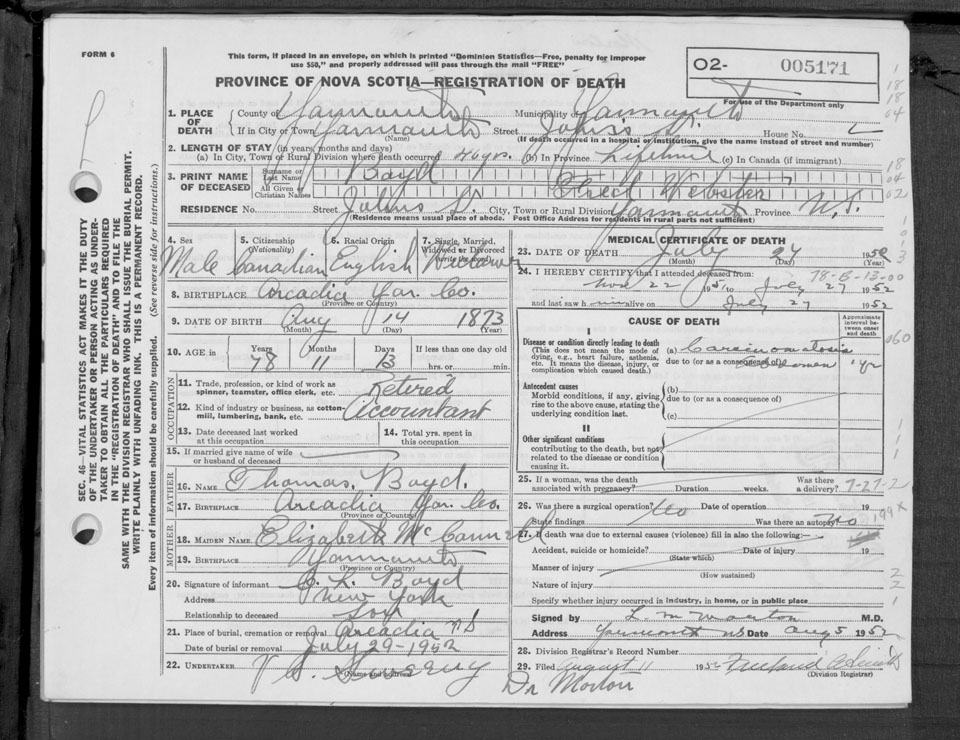 FORM 6
This form, if placed in an envelope, on which is printed "Dominion Statistics—Free, penalty for improper
use $50," and properly addressed will pass through the mail "FREE"
PROVINCE OF NOVA SCOTIA—REGISTRATION OF DEATH
O2- 005171
For use of the Department only
1. PLACE OF DEATH
County of Yarmouth Municipality of Yarmouth
If in City or Town Yarmouth Street Johns St. House No.
(Name) (If death occurred in a hospital or institution, give the name instead of street and number)
2. LENGTH OF STAY (in years, months and days)
(a) In City, Town or Rural Division where death occurred 40 yrs. (b) In Province Lifetime (c) In Canada (if immigrant)
3. PRINT NAME OF DECEASED
Surname or Last Name Boyd
All Given or Christian Names Fred Webster
RESIDENCE No. Street Johns St. City, Town or Rural Division Yarmouth Province N.S.
(Residence means usual place of abode. Post Office Address for residents in rural parts not sufficient)
4. Sex 5. Citizenship (Nationality) 6. Racial Origin 7. Single, Married, Widowed or Divorced (write the word)
Male Canadian English Widower
8. BIRTHPLACE Arcadia Yar. Co.
(Province or Country)
9. DATE OF BIRTH Aug 14 1873
(Month) (Day) (Year)
10. AGE in Years Months Days If less than one day old
78 11 13 hrs. or min.
OCCUPATION
11. Trade, profession, or kind of work as spinner, teamster, office clerk, etc. Retired
12. Kind of industry or business, as cotton-mill, lumbering, bank, etc. Accountant
13. Date deceased last worked at this occupation
14. Total yrs. spent in this occupation
15. If married give name of wife or husband of deceased
FATHER
16. NAME Thomas Boyd
17. BIRTHPLACE Arcadia Yar. Co.
(Province or Country)
MOTHER
18. MAIDEN NAME Elizabeth
19. BIRTHPLACE Yarmouth
(Province or Country)
20. Signature of informant Boyd
Address New York
Relationship to deceased Son
21. Place of burial, cremation or removal Arcadia NS
Date of burial or removal July 29-1952
22. UNDERTAKER V. S. Sweeny
(Name and address)
MEDICAL CERTIFICATE OF DEATH
23. DATE OF DEATH July 27 1952
(Month) (Day) (Year)
78-5-13-00
24. I HEREBY CERTIFY that I attended deceased from:
Nov 22 1951 to July 27 1952
and last saw him alive on July 27 1952
CAUSE OF DEATH
Approximate interval between onset and death
I
Disease or condition directly leading to death
(This does not mean the mode of dying, e.g., heart failure, asthenia, etc. It means the disease, injury, or complication which caused death.)
(a) Carcinomatosis
due to (or as a consequence of) 1 yr
Antecedent causes
Morbid conditions, if any, giving rise to the above cause, stating the underlying condition last.
(b)
due to (or as a consequence of)
(c)
II
Other significant conditions
contributing to the death, but not related to the disease or condition causing it.
25. If a woman, was the death associated with pregnancy? Duration weeks. Was there a delivery?
7-27-2
26. Was there a surgical operation? No Date of operation 19
State findings Was there an autopsy? No
199X
27. If death was due to external causes (violence) fill in also the following:—
Accident, suicide or homicide? Date of injury 19
(State which)
Manner of injury
(How sustained)
Nature of injury
Specify whether injury occurred in industry, in home, or in public place
Signed by L. M. Morton M.D.
Address Yarmouth NS Date Aug 5 1952
28. Division Registrar's Record Number
29. Filed August 11 1952
(Division Registrar)
Dr Morton
SEC. 46—VITAL STATISTICS ACT MAKES IT THE DUTY
OF THE UNDERTAKER OR PERSON ACTING AS UNDER-
TAKER TO OBTAIN ALL THE PARTICULARS REQUIRED
IN THE "REGISTRATION OF DEATH" AND TO FILE THE
SAME WITH THE DIVISION REGISTRAR WHO SHALL ISSUE THE BURIAL PERMIT.
WRITE PLAINLY WITH UNFADING INK. THIS IS A PERMANENT RECORD.
Every item of information should be carefully supplied. (See reverse side for instructions.)